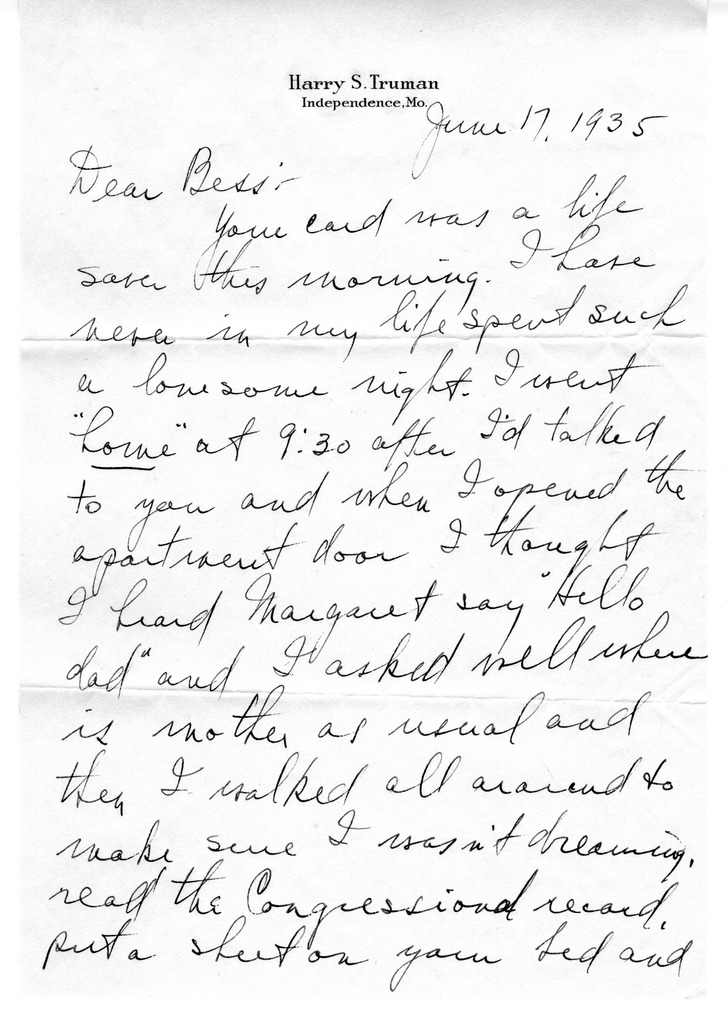 Harry S. Truman
Independence, Mo.
June 17, 1935
Dear Bess:-
Your card was a life
saver this morning. I have
never in my life spent such
a lonesome night. I went
"home" at 9:30 after I'd talked
to you and when I opened the
apartment door I thought
I heard Margaret say "Hello
dad" and I asked well where
is mother as usual and
then I walked all around to
make sure I wasn't dreaming,
read the Congressional record,
put a sheet on your bed and